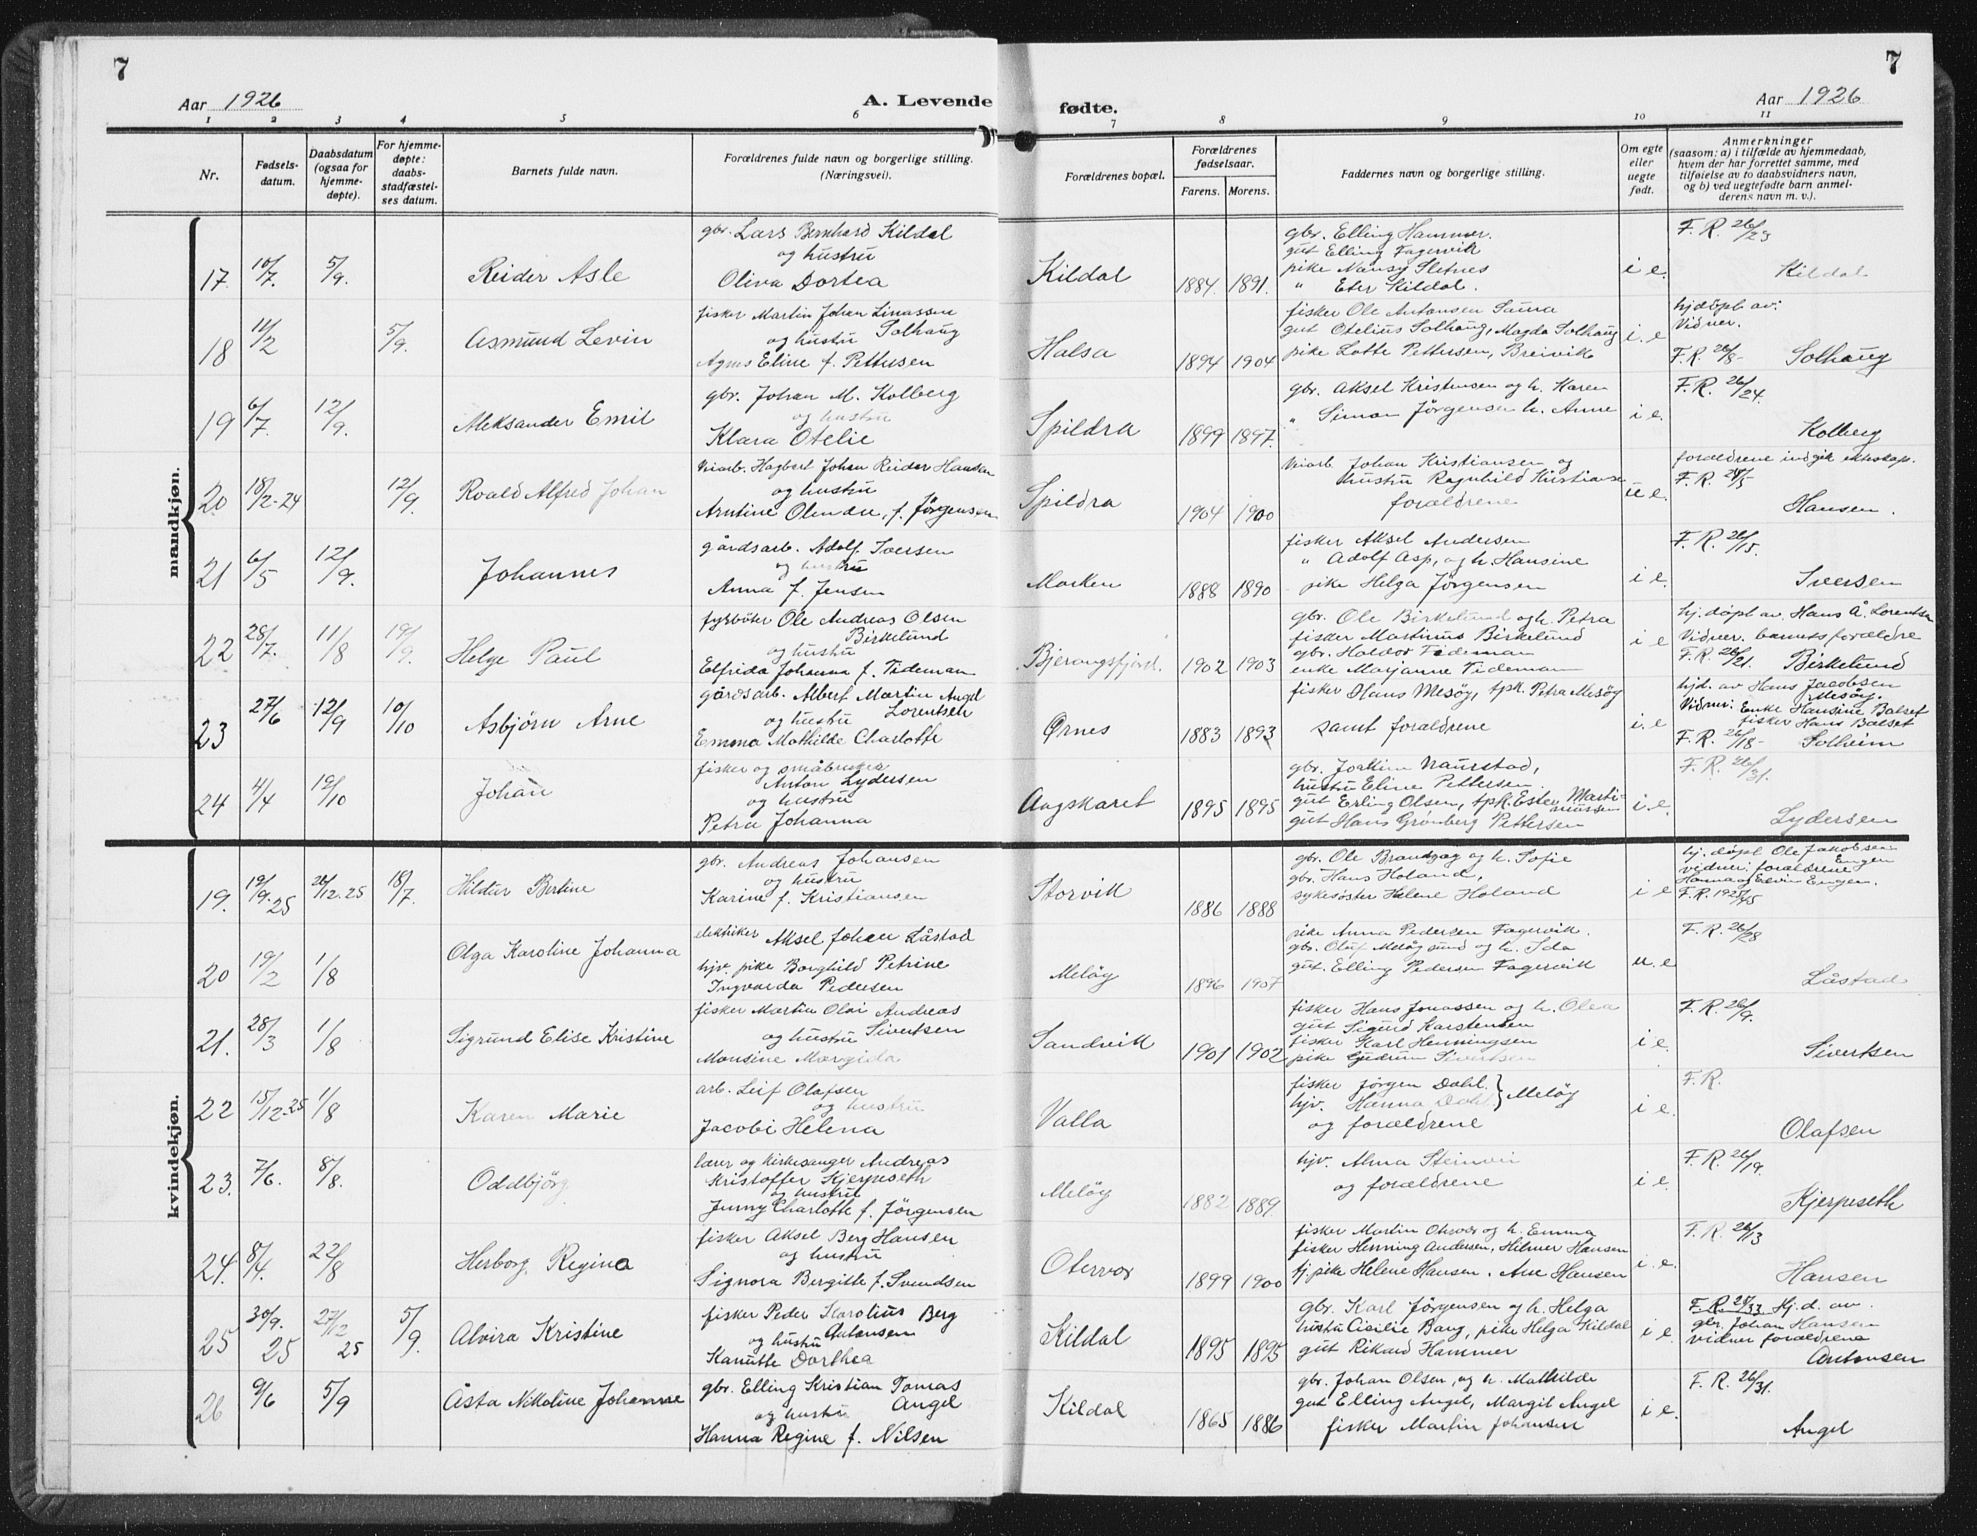 7
7
Aar 1926
A. Levende
fødte.
Aar 1926
1 2 3 4 5 6 7 8 9 10 11
Nr.
Fødsels-
datum.
Daabsdatum
(ogsaa for
hjemme-
døpte).
For hjemme-
døpte:
daabs-
stadfæstel-
ses datum.
Barnets fulde navn.
Forældrenes fulde navn og borgerlige stilling.
(Næringsvei).
Forældrenes bopæl.
Forældrenes
fødselsaar.
Farens. Morens.
Faddernes navn og borgerlige stilling.
Om egte
eller
uegte
født.
Anmerkninger
(saasom: a) i tilfælde av hjemmedaab,
hvem der har forrettet samme, med
tilføielse av to daabsvidners navn,
og b) ved uegtefødte barn anmel-
derens navn m. v.).
mandkjøn.
17. 10/7. 5/9. Reider Asle
gbr. Lars Bernhard Kildal
og hustru
Oliva Dortea
Kildal 1884. 1891.
gbr. Elling Hammer.
gut Elling Fagervik
pike Nansy Sletnes
" Eter Kildal.
i e.
F. R. 26/23
Kildal
18 11/2 5/9. Asmund Levin
fisker Martin Johan Linassen
og hustru Solhaug
Agnes Eline f. Pettersen
Halsa 1894 1904
fisker Ole Antonsen Sauna
gut Otelius Solhaug, Magda Solhaug
pike Lotte Pettersen, Breivik
i. e
hjdöpt av:
Vidner.
F. R. 26/8- Solhaug
19 6/7. 12/9. Aleksander Emil
gbr. Johan M. Kolberg
og hustru
Klara Otelie
Spildra 1899 1897.
gbr. Aksel Kristensen og h. Karen
" Simon Jörgensen h. Anne
i e.
F. R. 26/24.
Kolberg
20 18/2-24 12/9. Roald Alfred Johan
Hagbart Johan Reidar Hansen
og hustru
Arntine Olendse, f. Jörgensen
Spildra 1904 1900
Johan Kristiansen og
hustru Ragnhild Kristiansen
forældrene
u e.
forældrene indgik ekteskap.
F. R. 24/5
Hansen.
21 6/5 12/9. Johannes
gårdsarb. Adolf Iversen
og hustru
Anna f. Jensen
Marken 1888 1890
fisker Aksel Andersen
" Adolf Asp, og h. Hansine
pike Helga Jörgensen
i e.
F. R. 26/15.
Iversen
22 28/7. 11/8 19/9. Helge Paul
fyrböter Ole Andreas Olsen
Birkelund
og hustru
Elfrida Johanna f. Tideman
Bjerangsfjord. 1902 1903
gbr. Ole Birkelund og h. Petra
fisker Martinus Birkelund
gbr. Haldor Tideman
enke Marjanne Tideman
i e
hj. döpt av Hans Å. Lorentsen
Vidner. barnets forældre
F. R. 26/21. Birkelund
23 27/6 12/9 10/10 Asbjörn Arne
gårdsarb. Albert Martin Angel
og hustru Lorentsen
Emma Mathilde Charlotte
Ørnes 1883 1893
fisker Hans Mesöy, tpk. Petra Mesöy
samt forældrene
i. e
hjd. av Hans Jacobsen
Mesöy.
Vidner: Enke Hansine Balset
fisker Hans Balset
F. R. 26/18- Solheim
24 4/4 19/10 Johan
fisker og småbruker
Anton Lydersen
og hustru
Petra Johanna
Angskaret 1895 1895
gbr. Joakim Naurstad,
hustru Eline Pettersen
gut Erling Olsen, tpk. Ester Marti-
nussen
gut Hans Grönberg Pettersen
i. e.
F. R. 26/31.
Lydersen
kvindekjøn.
19. 19/9.25 26/12.25 18/7. Hildur Bertine
gbr. Andreas Johansen
og hustru
Karine f. Kristiansen
Storvik 1886 1888
gbr. Ole Brandsøy og h. Sofie
gbr. Hans Holand,
sykesöster Helene Holand
i e
hj. döpt Ole Jakobsen
Engen
vidner: forældrene
Hanna og Edvin Engen.
F. R. 1925/45
20 19/2 1/8 Olga Karoline Johanna
elektriker Aksel Johan Låstad
hjv. pike Borghild Petrine
Ingvarda Pedersen
Melöy 1896 1907
pike Anna Pedersen Fagervik.
gbr. Oluf Melöysund og h. Ida
gut. Elling Pedersen Fagervik
u. e
F. R. 26/28
Låstad
21. 28/3 1/8 Sigrund Elise Kristine
fisker Martin Olai Andreas
og hustru Sivertsen
Monsine Margida
Sandvik 1901 1902
fisker Hans Jonassen og h. Olea
gut Sigurd Karstensen
fisker Karl Henningsen
pike Gudrun Sivertsen
i e.
F. R. 26/9.
Sivertsen
22 15/12.25 1/8 Karen Marie
arb. Leif Olafsen
og hustru
Jacobi Helena
Valla
fisker Jörgen Dahl.
hjv. Hanna Dahl } Melöy
og forældrene
i e.
F. R.
Olafsen
23. 7/6. 8/8. Oddbjörg
lærer og kirkesanger Andreas
Kristoffer Kjerpeseth
og hustru
Jenny Charlotte f. Jörgensen
Melöy 1882 1889.
hjv. Alma Steinvir
og forældrene
i e.
F. R. 26/19.
Kjerpeseth
24. 8/4. 22/8 Herborg Regina
fisker Aksel Berg Hansen
og hustru
Signora Bergitte f. Svendsen
Otervær 1899 1900
fisker Martin Otervær og h. Emma
fisker Henning Andersen, Hilmer Hansen
hj. pike Helene Hansen. Ane Hansen
i e.
F. R. 26/13
Hansen
25 30/9.25 27/12 25 5/9. Alvira Kristine
fisker Peder Karolius Berg
og hustru Antonsen
Kanutte Dorthea
Kildal 1895 1895
gbr. Karl Jörgensen og h. Helga
hustru Cicilie Barg, pike Helga Kildal
gut Rikard Hammer
i e.
F. R. 25/33 Hj. d. av.
gbr. Johan Hansen
vidner forældrene
Antonsen
26 9/6 5/9 Åsta Nikoline Johanne
gbr. Elling Kristian Tomas
og hustru Angel
Hanna Regine f. Nilsen
Kildal 1865 1886
gbr. Johan Olsen, og h. Mathilde
gut Elling Angel, Margit Angel
fisker Martin Johansen
i e.
F. R. 26/31.
Angel